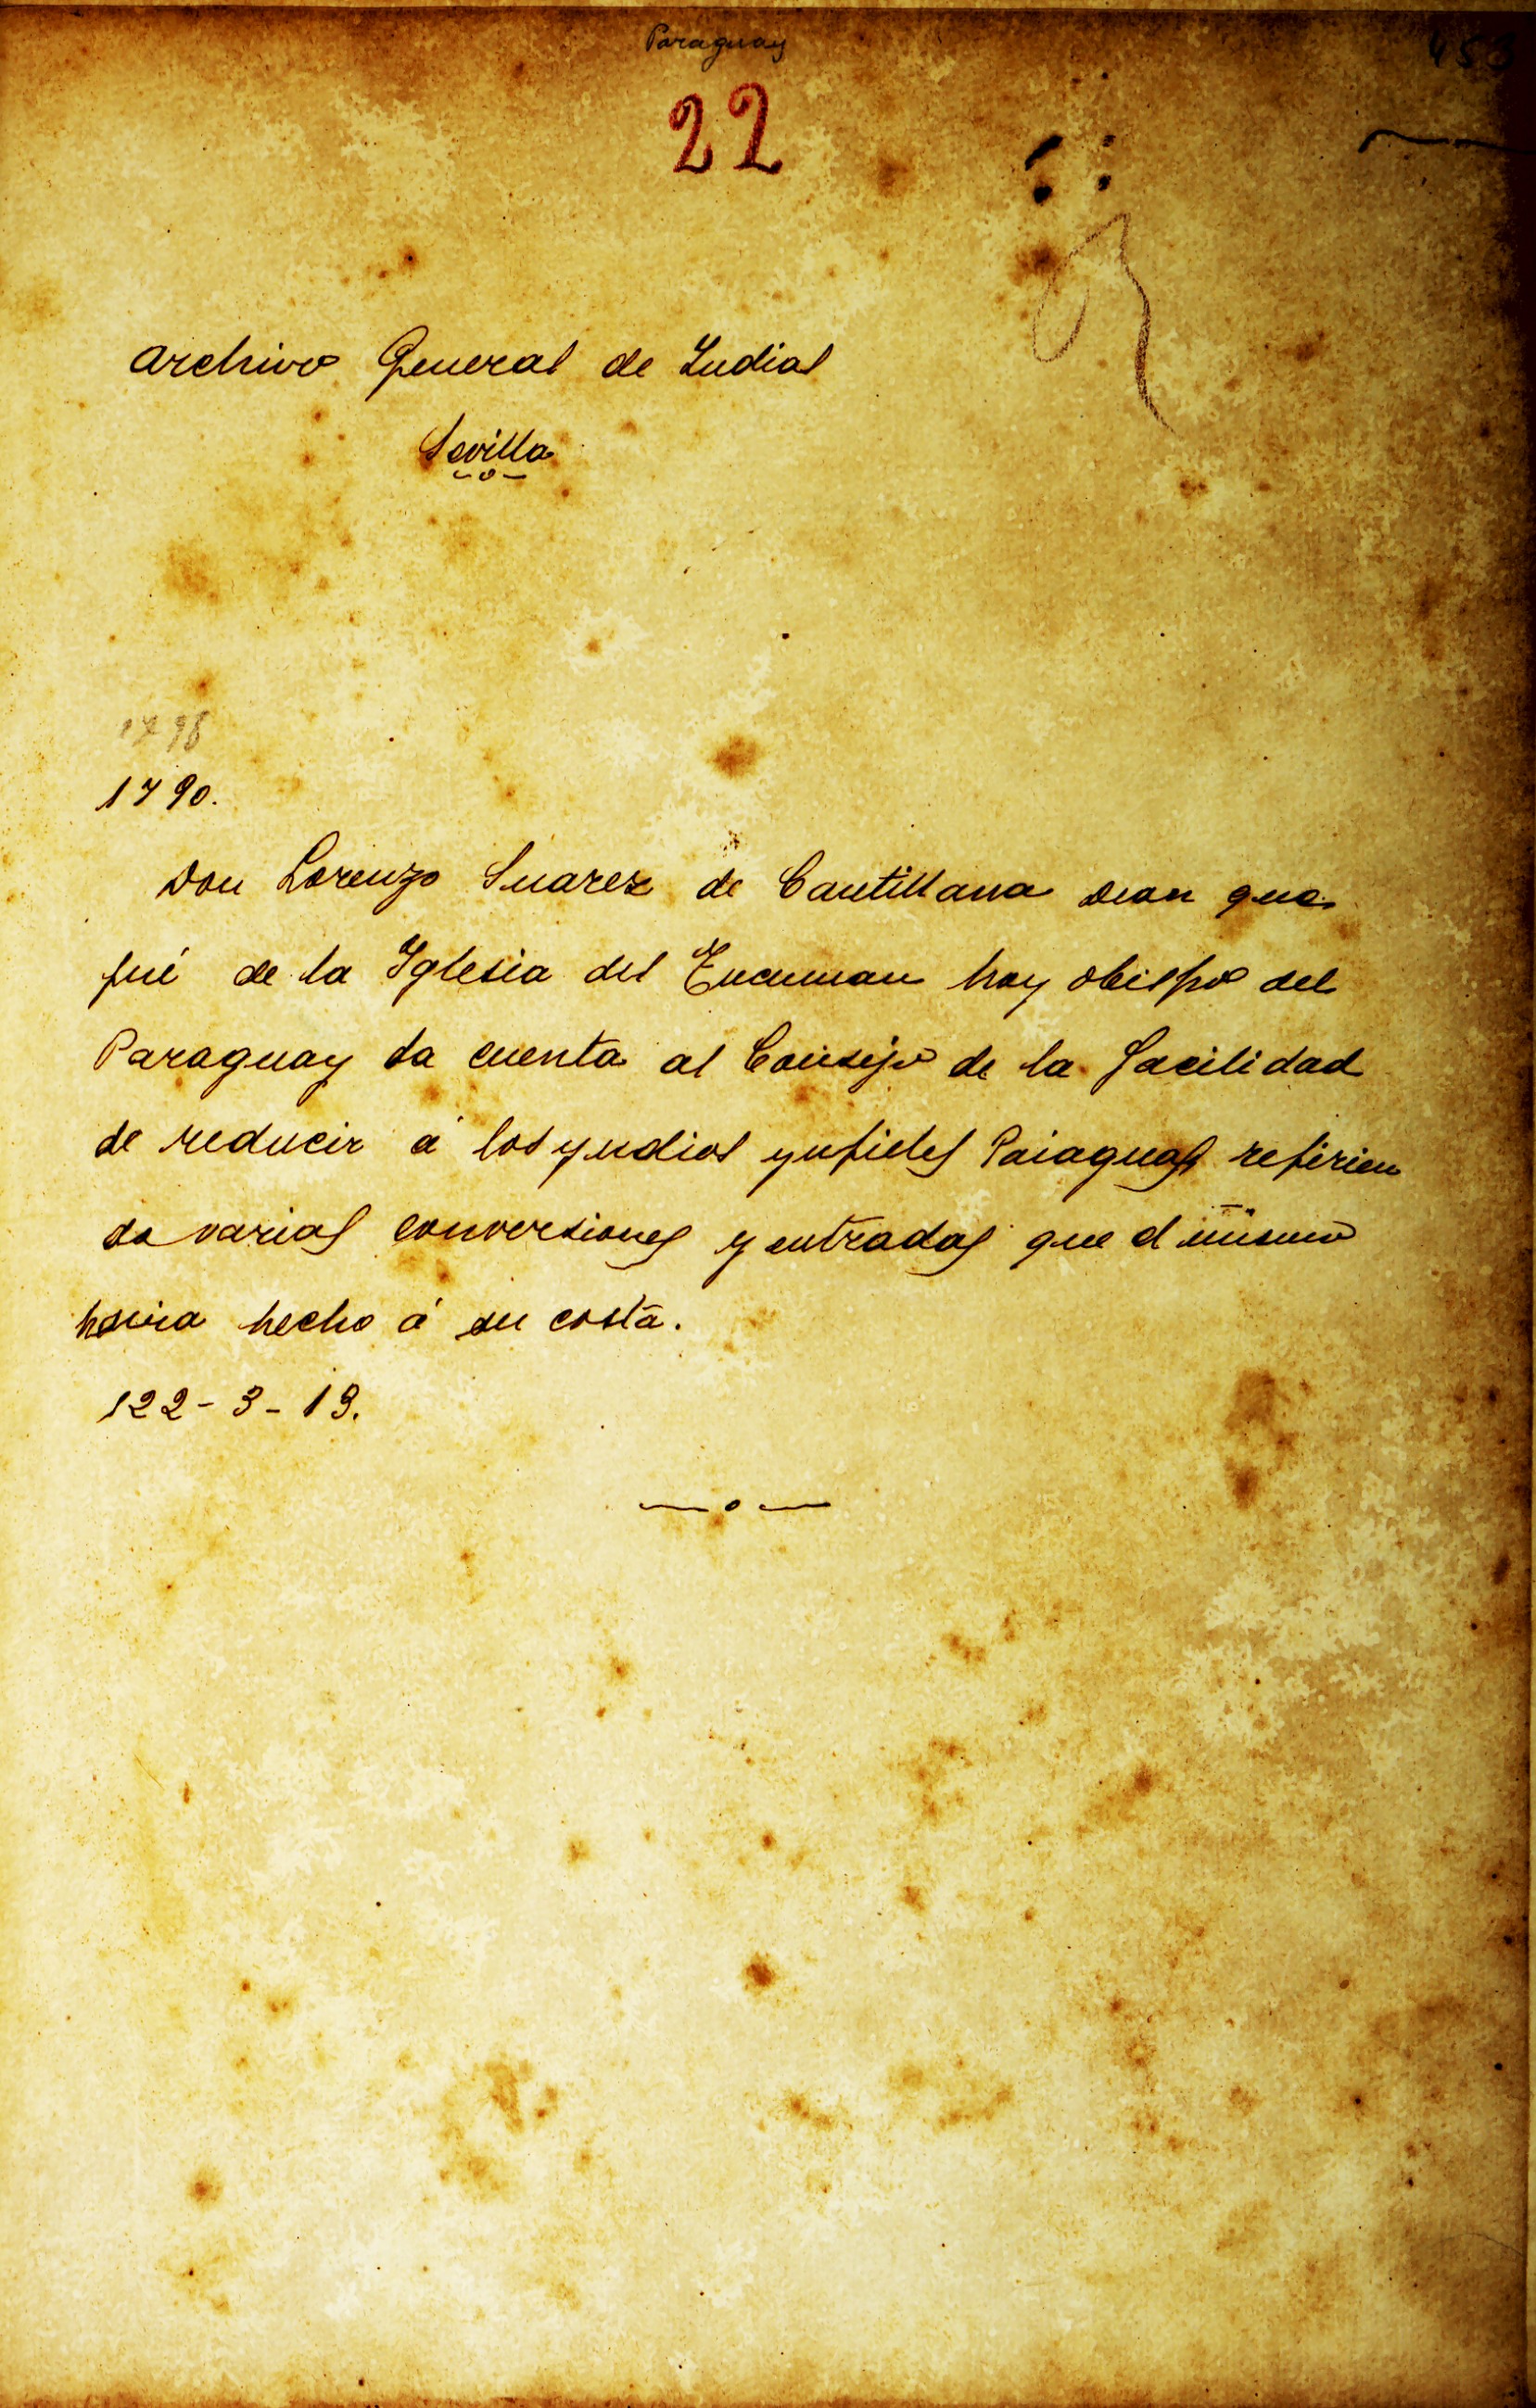 Paraguay
453
22
Archivo General de Indias
Sevilla
1798
1790.
Don Lorenzo Suarez de Cantillana Dean que
fué de la Iglesia del Tucuman hoy obispo del
Paraguay da cuenta al Consejo de la facilidad
de reducir á los yndios ynfieles Paiaguas refirien
do varias conversiones y entradas que el mismo
havia hecho á su costa.
122-3-19.